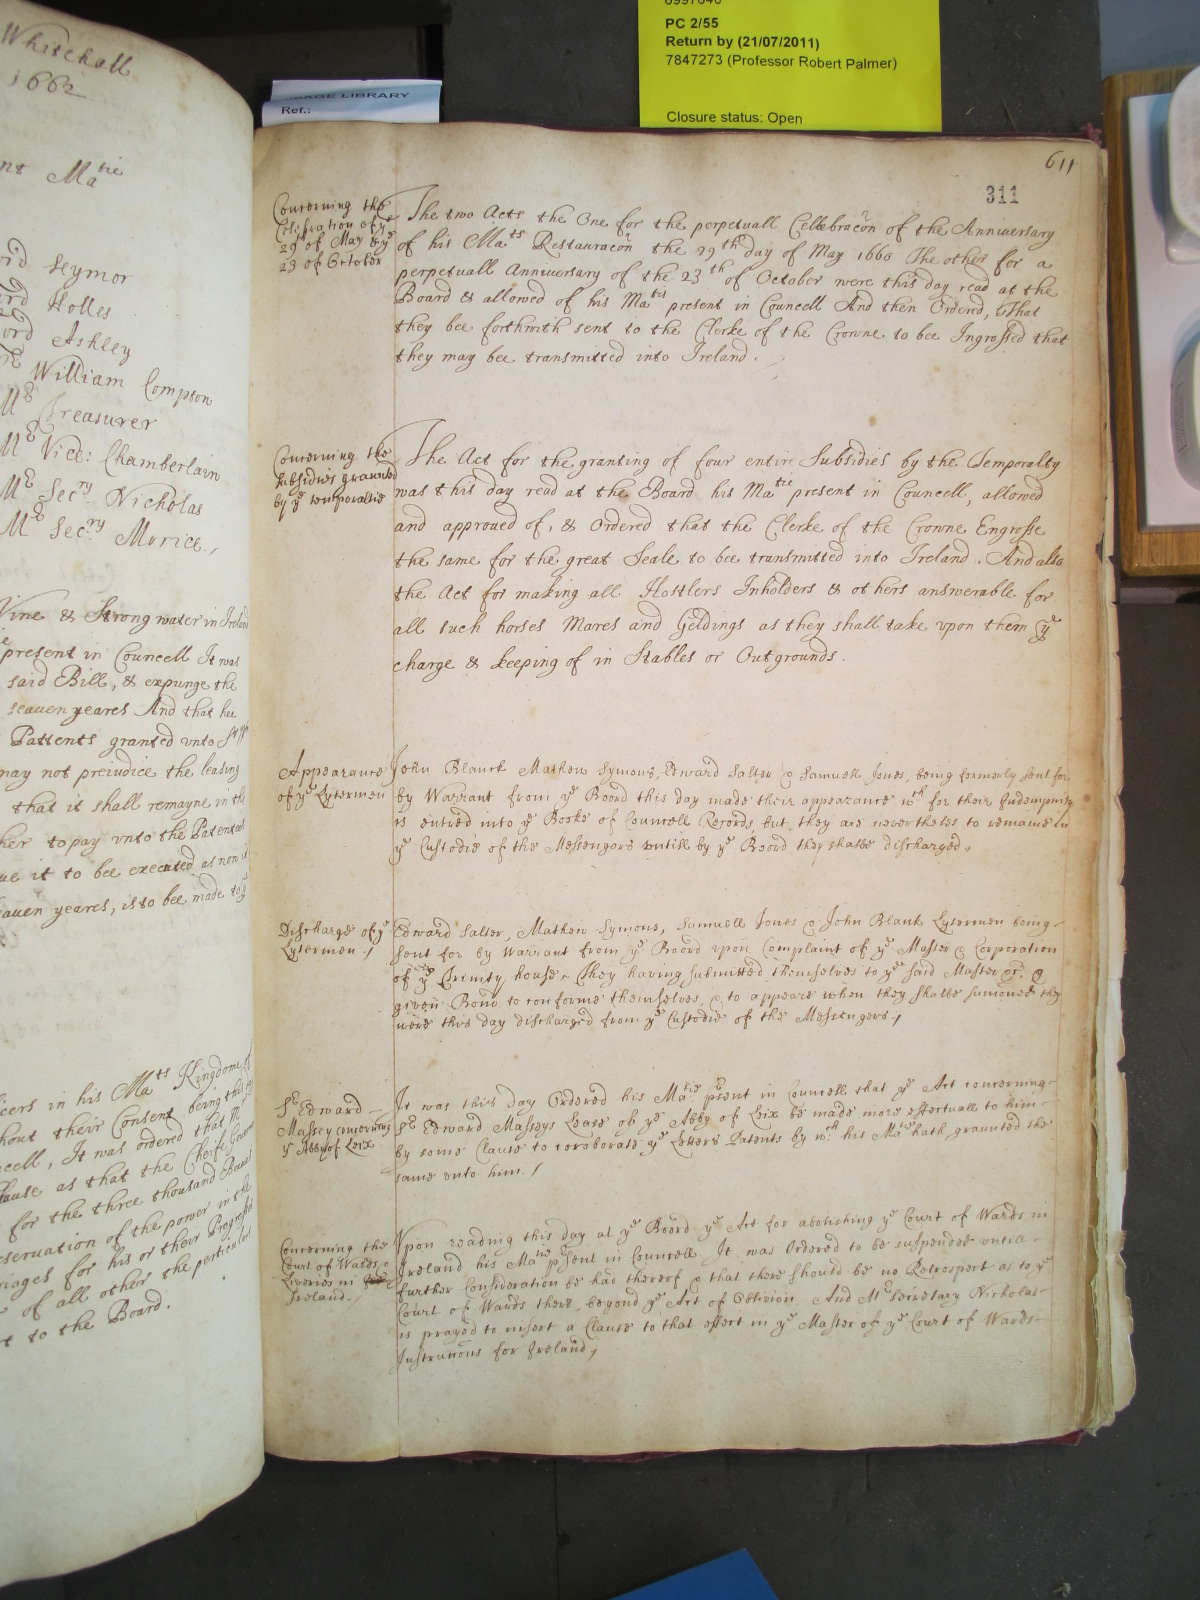 6997646
PC 2/55
Return by (21/07/2011)
7847273 (Professor Robert Palmer)
Closure status: Open
IMAGE LIBRARY
Ref.:
Whitehall
1662
Ma^tie
Seymor
Holles
Ashley
William Compton
M^r Treasurer
M^r Vice: Chamberlain
M^r Sec^ry Nicholas
M^r Sec^ry Morice./
Wine & Strong water in Ireland
present in Councell It was
said Bill, & expunge the
seauen yeares And that hee
Pattents granted vnto
may not preiudice the leasing
that it shall remayne in the
to pay vnto the Patentees
it to bee executed as now it
yeares, is to bee made to
in his Ma^ts Kingdome of
their Consent being this
It was ordered that M^r
as that the Cheife
for the three thousand
of the power in the
for his or their
of all other the particulers
to the Board.
611
311
Concerning the
Celibration of y^e
29^th of May & y^e
23 of October
The two Acts the One for the perpetuall Cellebracõn of the Anniversary
of his Ma^ts Restauracõn the 29^th day of May 1660 The other for a
perpetuall Anniversary of the 23^th of October were this day read at the
Board & allowed of his Ma^tie present in Councell And then Ordered, That
they bee forthwith sent to the Clerke of the Crowne to bee Ingrossed that
they may bee transmitted into Ireland.
Concerning the
Subsidies graunted
by y^e temporaltie
The Act for the granting of four entire Subsidies by the Temporalty
was this day read at the Board his Ma^tie present in Councell, allowed
and approved of, & Ordered that the Clerke of the Crowne Engrosse
the same for the great Seale to bee transmitted into Ireland. And also
the Act for making all Hostlers Inholders & others answerable for
all such horses Mares and Geldings as they shall take vpon them y^e
charge & keeping of in Stables or Outgrounds.
Appearance
of y^e Lytermen
John Blanck Mathew Symons, Edward Salter & Samuell Jones, being formerly sent for
by Warrant from y^e Board this day made their appearance w^ch for their Indempnity
is entred into y^e Books of Councell Records, but they are neverthelesse to remaine in
y^e Custodie of the Messengers vntill by y^e Board they shalbe discharged.
Discharge of y^e
Lytermen /
Edward Salter, Mathew Symons, Samuell Jones & John Blank Lytermen being
sent for by Warrant from y^e Board vpon Complaint of y^e Master & Corporation
of y^e Trinity house, They having submitted themselves to y^e said Master &c. &
given Bond to conforme themselves, & to appeare when they shalbe sumoned they
were this day discharged from y^e Custodie of the Messengers /
S^r Edward
Massey concerning
y^e Abby of Leix
It was this day Ordered his Ma^tie p^rsent in Councell that y^e Act concerning
S^r Edward Masseys Lease of y^e Abby of Leix be made more effectuall to him
by some Clause to coroborate y^e Letters Patents by w^ch his Ma^tie hath graunted the
same vnto him. /
Concerning the
Court of Wards &
Liveries in
Ireland./
Vpon reading this day at y^e Board y^e Act for abolishing y^e Court of Wards in
Ireland his Ma^tie p^rsent in Councell It was Ordered to be suspended vntill
further Consideration be had thereof & that there should be no Retrospect as to y^e
Court of Wards there, beyond y^e Act of Oblivion. And M^r Secretary Nicholas
is prayed to insert a Clause to that effect in y^e Master of y^e Court of Wards
Instructions for Ireland,